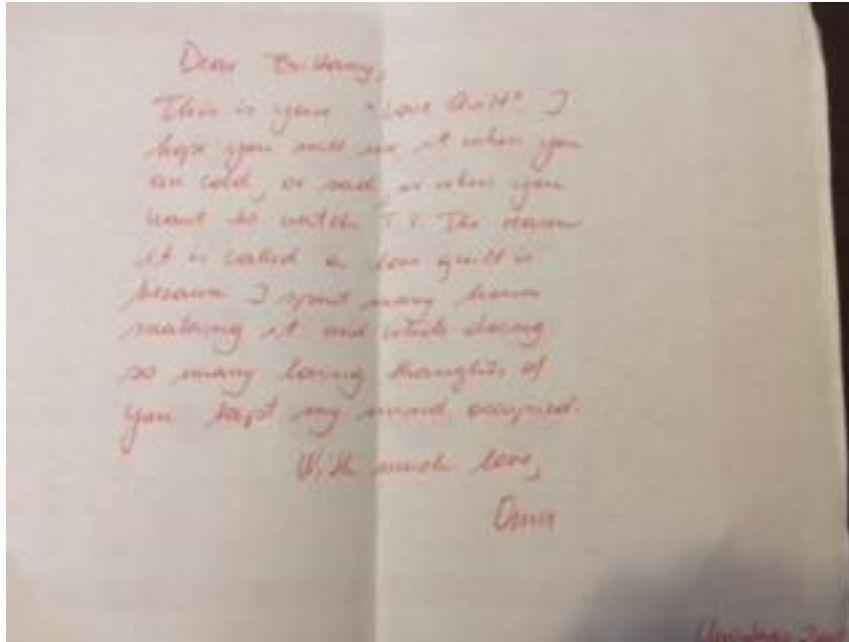 Dear Brittany,
This is your "Love Quilt" I
hope you will use it when you
are cold, or sad, or when you
want to watch T.V. The reason
it is called a love quilt is
because I spent many hours
making it and while doing
so many loving thoughts of
you kept my mind occupied.
With much love,
Oma